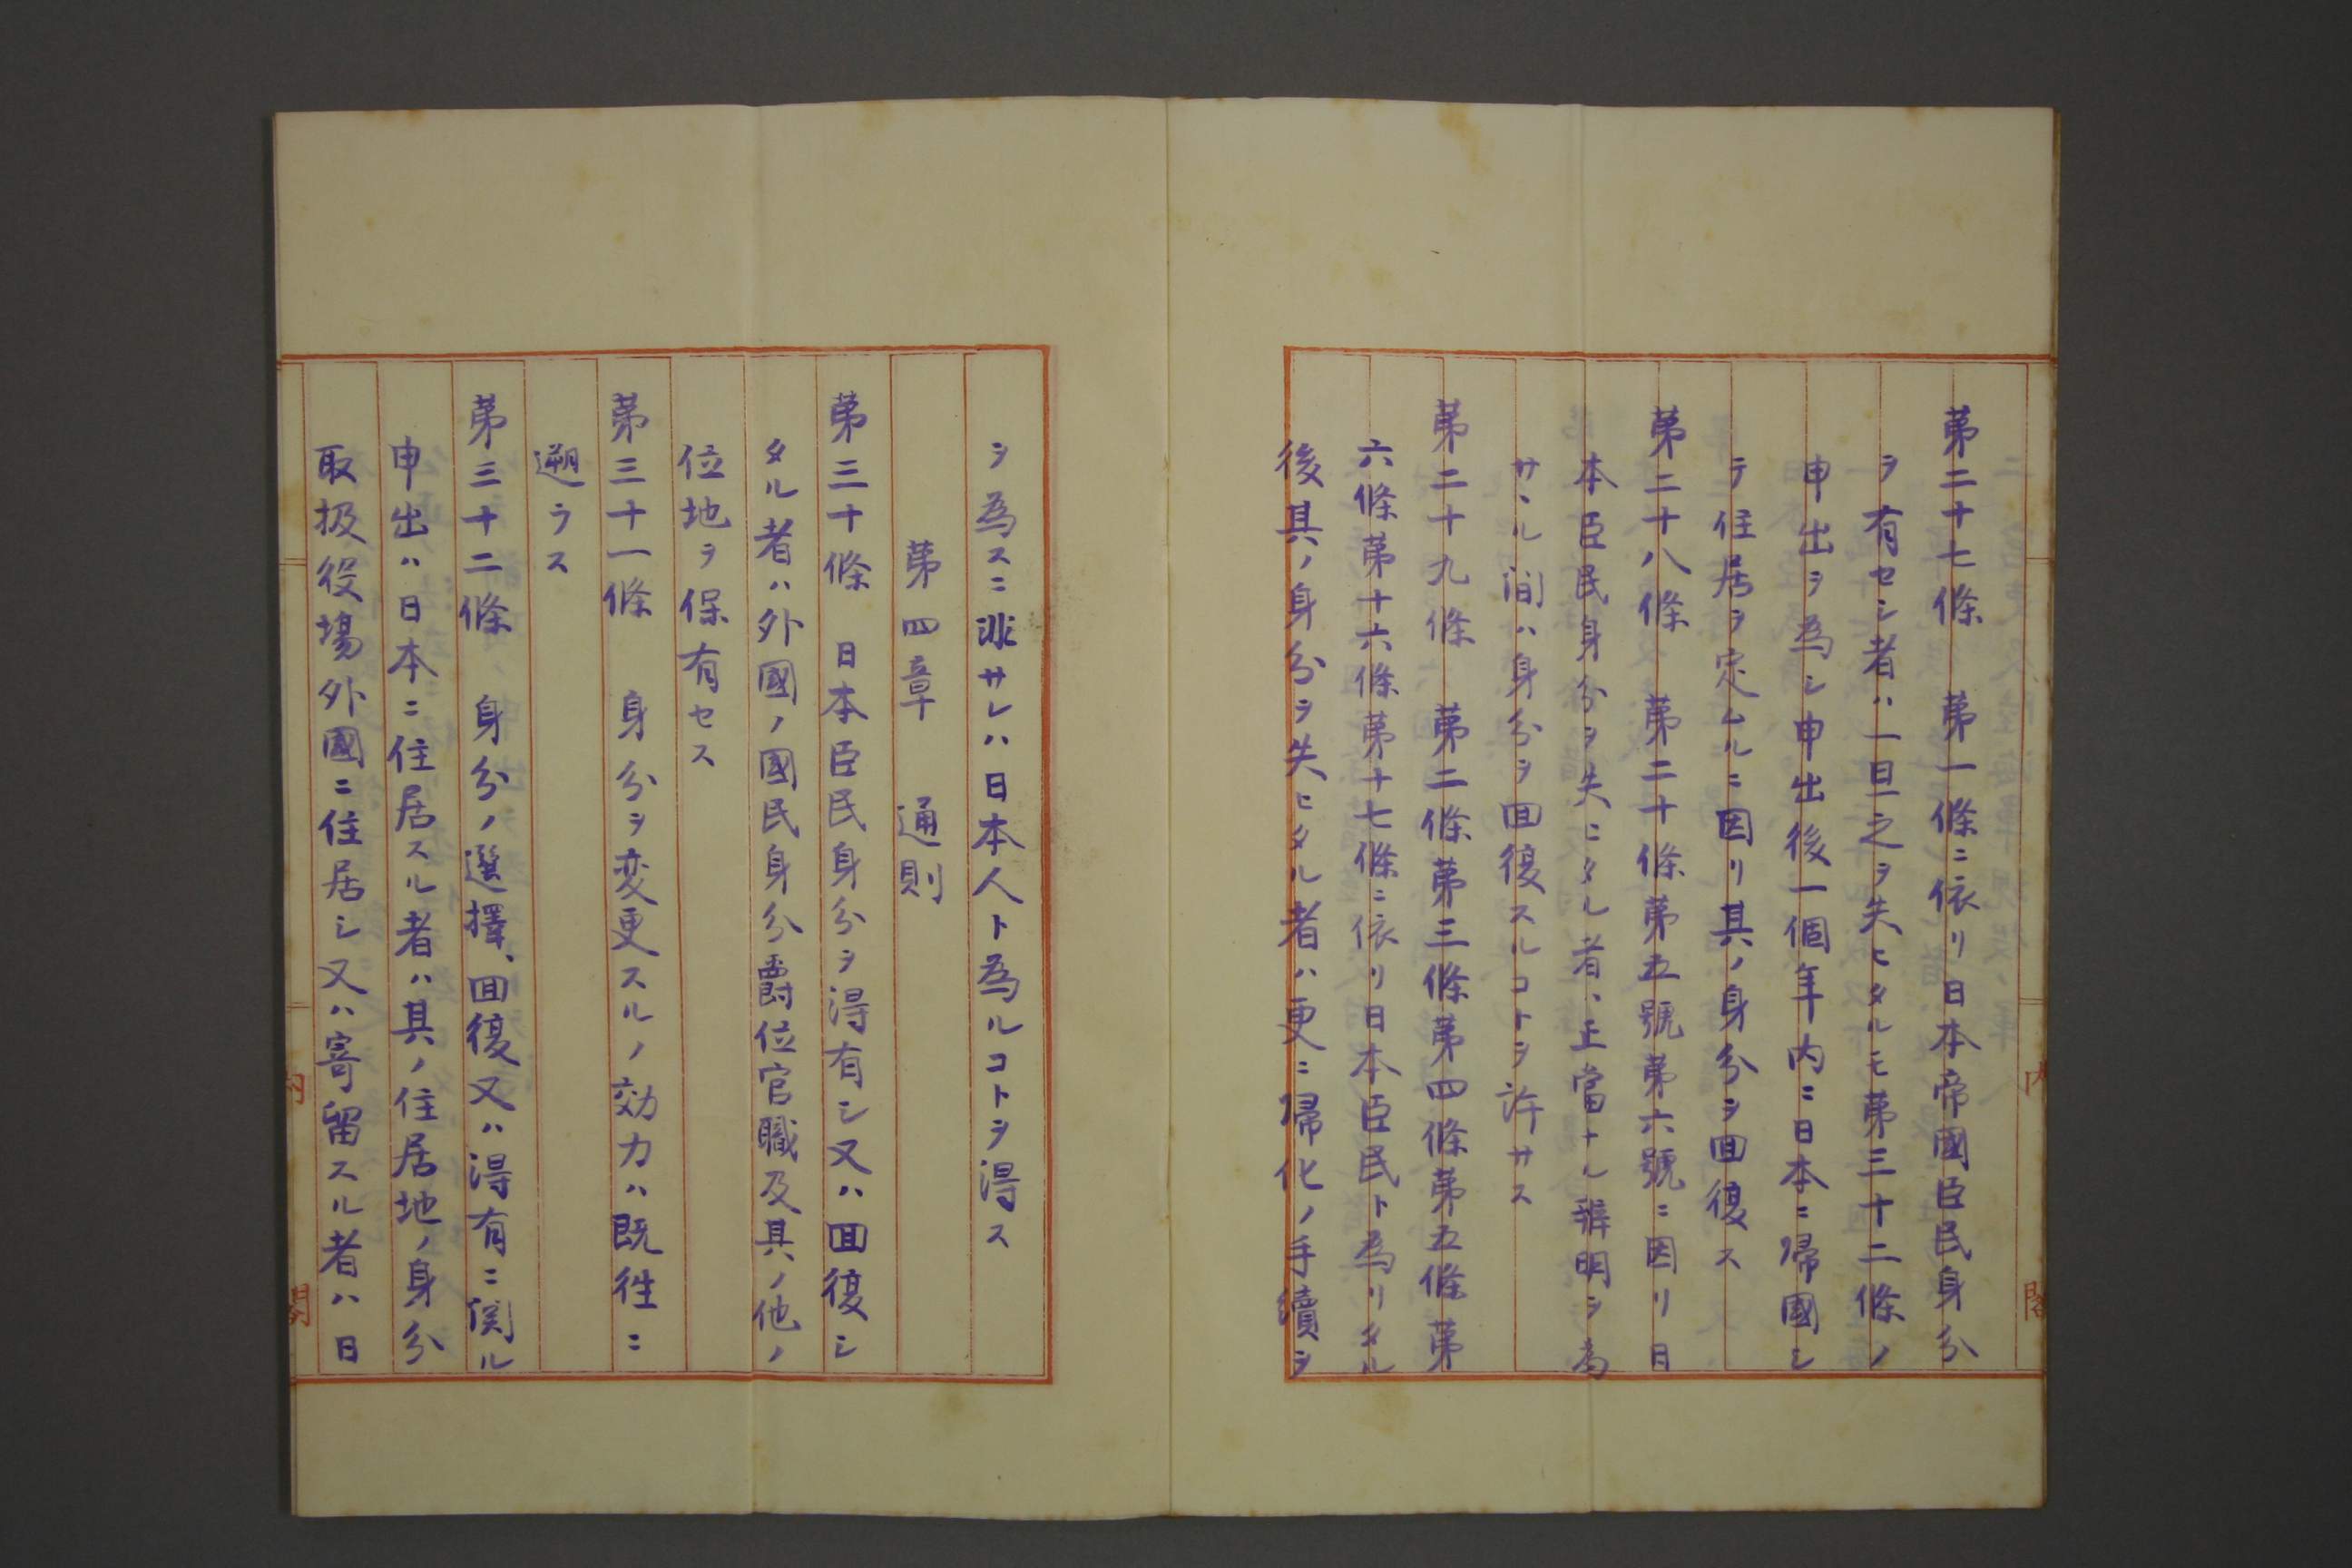 第二十七條　第一條ニ依リ日本帝國臣民身分
ヲ有セシ者ハ一旦之ヲ失ヒタルモ第三十二條ノ
申出ヲ為シ申出後一個年内ニ日本ニ帰國シ
テ住居ヲ定ムルニ因リ其ノ身分ヲ回復ス
第二十八條　第二十條第五號第六號ニ因リ日
本臣民身分ヲ失ヒタル者ハ正當ナル辨明ヲ為
サヽル間ハ身分ヲ回復スルコトヲ許サス
第二十九條　第二條第三條第四條第五條第
六條第十六條第十七條ニ依リ日本臣民ト為リタル
後其ノ身分ヲ失ヒタル者ハ更ニ帰化ノ手續ヲ
内閣
ヲ為スニ非サレハ日本人ト為ルコトヲ得ス
第四章　通則
第三十條　日本臣民身分ヲ得有シ又ハ回復シ
タル者ハ外國ノ國民身分爵位官職及其ノ他ノ
位地ヲ保有セス
第三十一條　身分ヲ変更スルノ効力ハ既往ニ
遡ラス
第三十二條　身分ノ選擇、回復又ハ得有ニ関ル
申出ハ日本ニ住居スル者ハ其ノ住居地ノ身分
取扱役場外國ニ住居シ又ハ寄留スル者ハ日
内閣